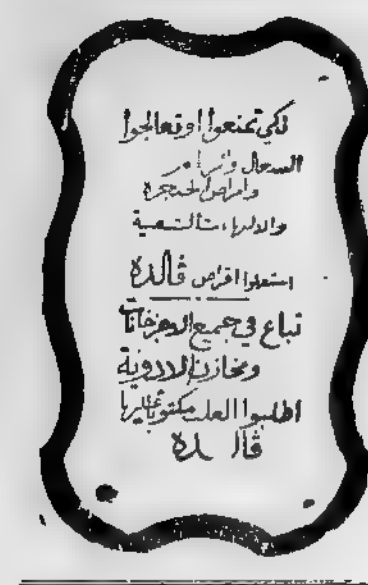 لكي تمنعوا او تعالجوا
السعال و
وامراض الحنجرة
والالتهابات الشعبية
استعملوا اقراص ڤالدة
تباع في جميع الاجزخانات
ومخازن الادوية
اطلبوا العلب مكتوب عليها
ڤالدة